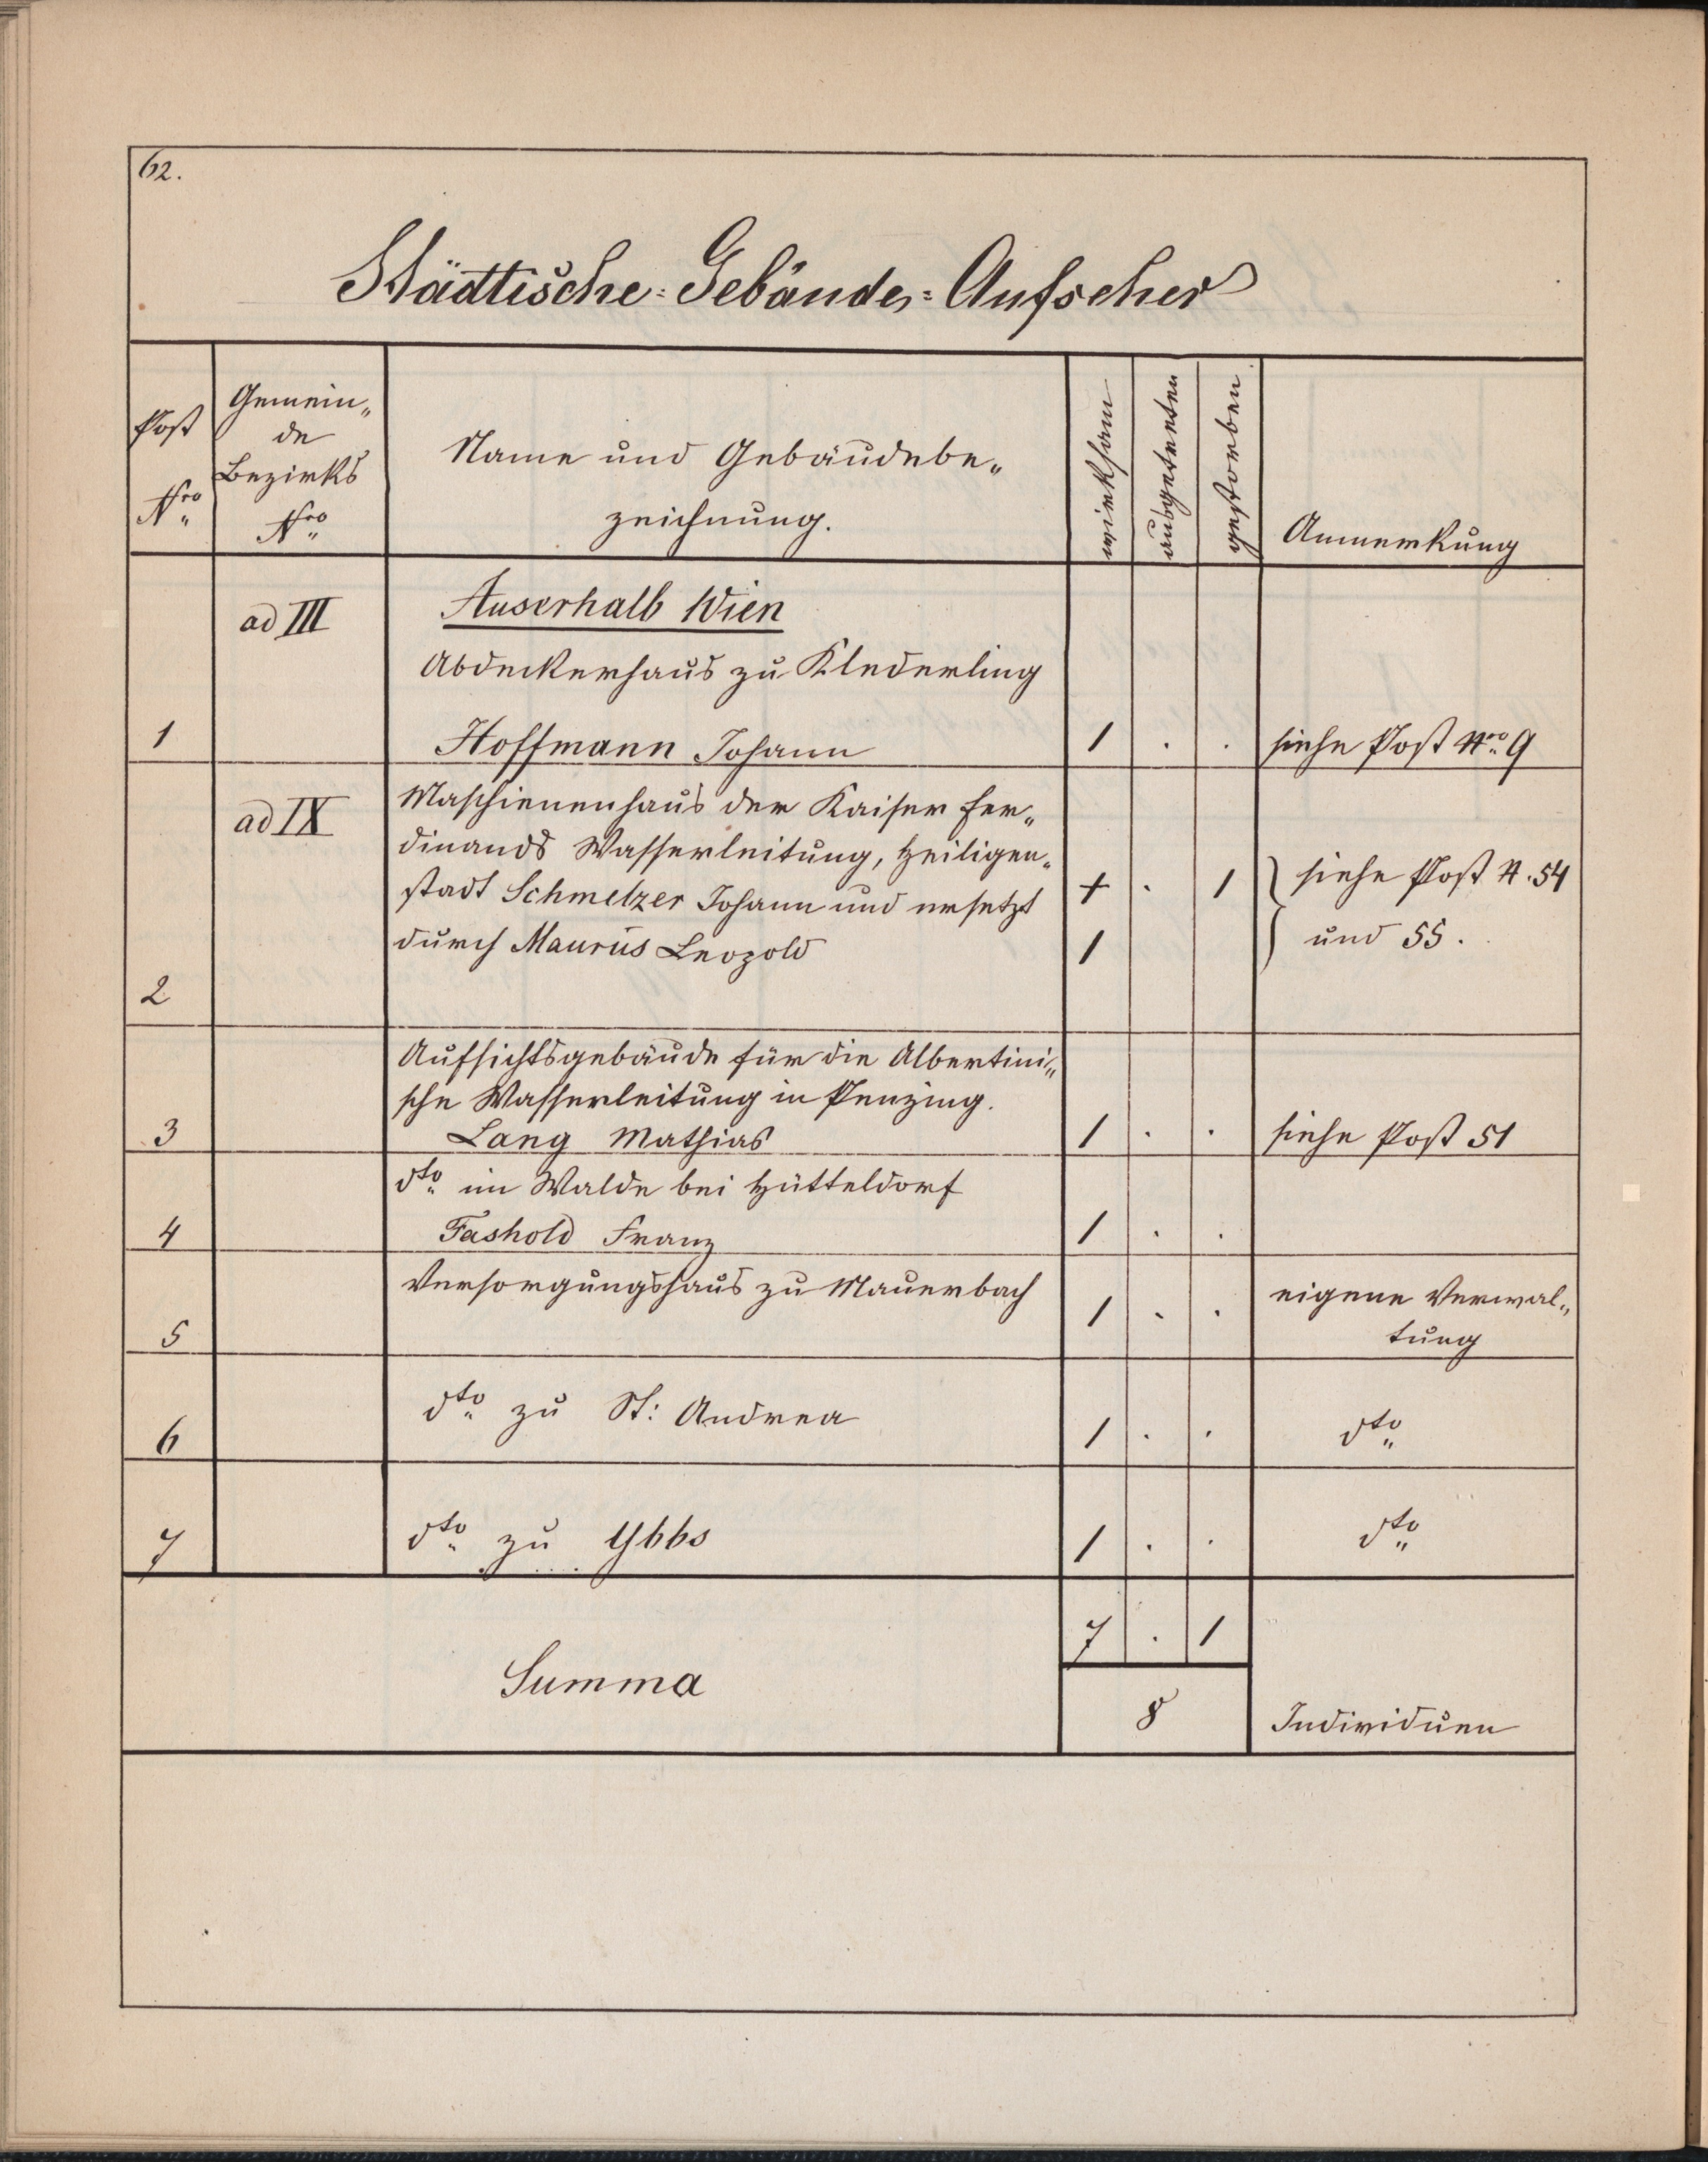 62.
Städtische=Gebäude=Aufseher
Post Nro
Gemein„
de
Bezirks
Nro
Name und Gebäudebe„
zeichnung.
wirksam
ausgetreten
gestorben
Anmerkung
ad III
Auserhalb Wien
Abdeckerhaus zu Klederling
1 Hoffmann Johann 1 . . siehe Post Nro 9
ad IX
Maschienenhaus der Kaiser Fer„
dinands Wasserleitung, Heiligen„
stadt Schmelzer Johann und ersetzt + . 1 siehe Post N. 54
durch Maurus Leopold 1 und 55.
2
Aufsichtsgebäude für die Albertini„
sche Wasserleitung in Penzing.
3 Lang Mathias 1 . . siehe Post 51
dto im Walde bei Hütteldorf
4 Fashold Franz 1 . .
Versorgungshaus zu Mauerbach
5 1 . . eigene Verwal„
tung
6 dto zu St: Andrea 1 . . dto
7 dto zu Ybbs 1 . . dto
7 . 1
Summa
8 Individuen